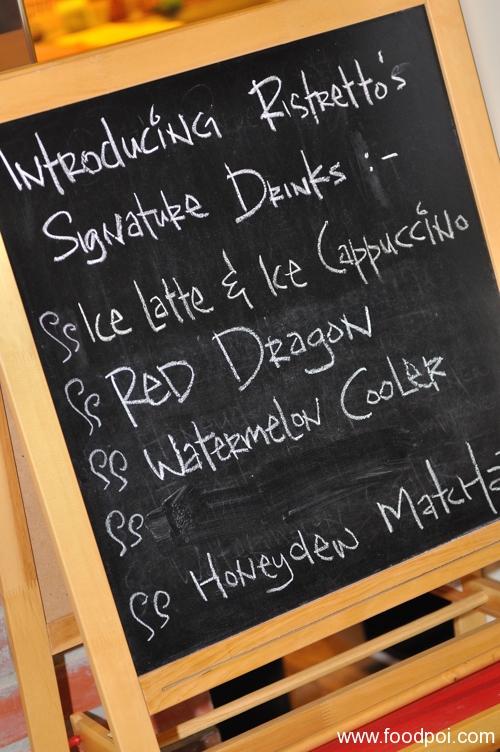 Introducing Ristretto's
Signature Drinks :-
Ice Latte & Ice Cappuccino
Red Dragon
Watermelon Cooler
Honeydew Matcha
www.foodpoi.com